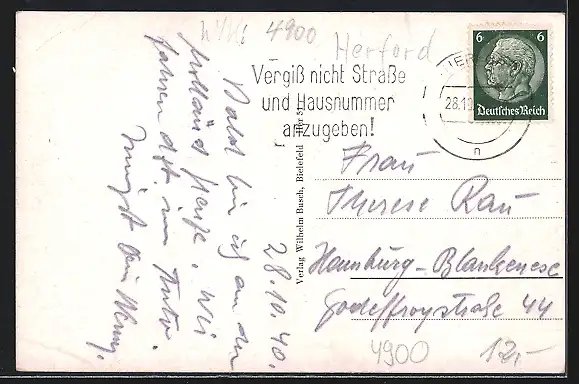 WKi 4900
Herford
Vergiß nicht Straße
und Hausnummer
anzugeben!
HERFORD
28.10.
n
6 6
Deutsches Reich
28.10.40.
Bald bin ich an der
Hollands grenze. Wir
fahren dort im Auto.
Innigst Dein
Verlag Wilhelm Busch, Bielefeld Her 5
Frau
Therese Rau
Hamburg-Blankenese
Godeffroystraße 44
4900 12,-